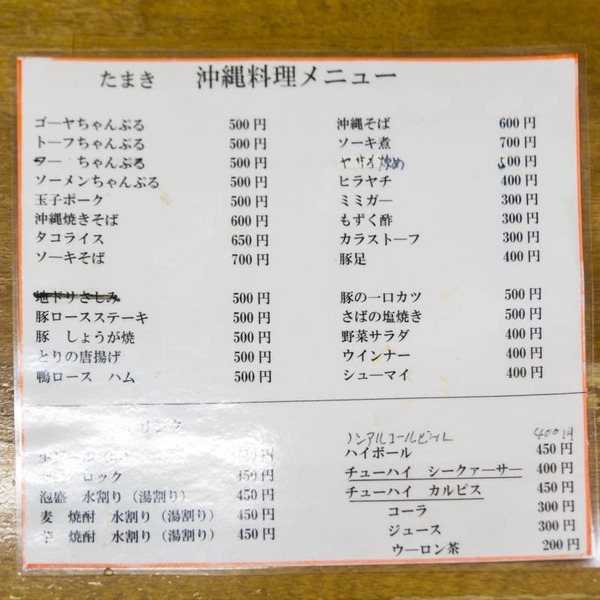 たまき 沖縄料理メニュー
ゴーヤちゃんぷる 500円
トーフちゃんぷる 500円
ちゃんぷる 500円
ソーメンちゃんぷる 500円
玉子ポーク 500円
沖縄焼きそば 600円
タコライス 650円
ソーキそば 700円
地ドリさしみ 500円
豚ロースステーキ 500円
豚 しょうが焼 500円
とりの唐揚げ 500円
鴨ロース ハム 500円
沖縄そば 600円
ソーキ煮 700円
ヤサイ炒め 500円
ヒラヤチ 400円
ミミガー 300円
もずく酢 300円
カラストーフ 300円
豚足 400円
豚の一口カツ 500円
さばの塩焼き 500円
野菜サラダ 400円
ウインナー 400円
シューマイ 400円
リンク
450円
ロック 450円
泡盛 水割り（湯割り） 450円
麦 焼酎 水割り（湯割り） 450円
芋 焼酎 水割り（湯割り） 450円
ノンアルコールビール 400円
ハイボール 450円
チューハイ シークァーサー 400円
チューハイ カルピス 450円
コーラ 300円
ジュース 300円
ウーロン茶 200円